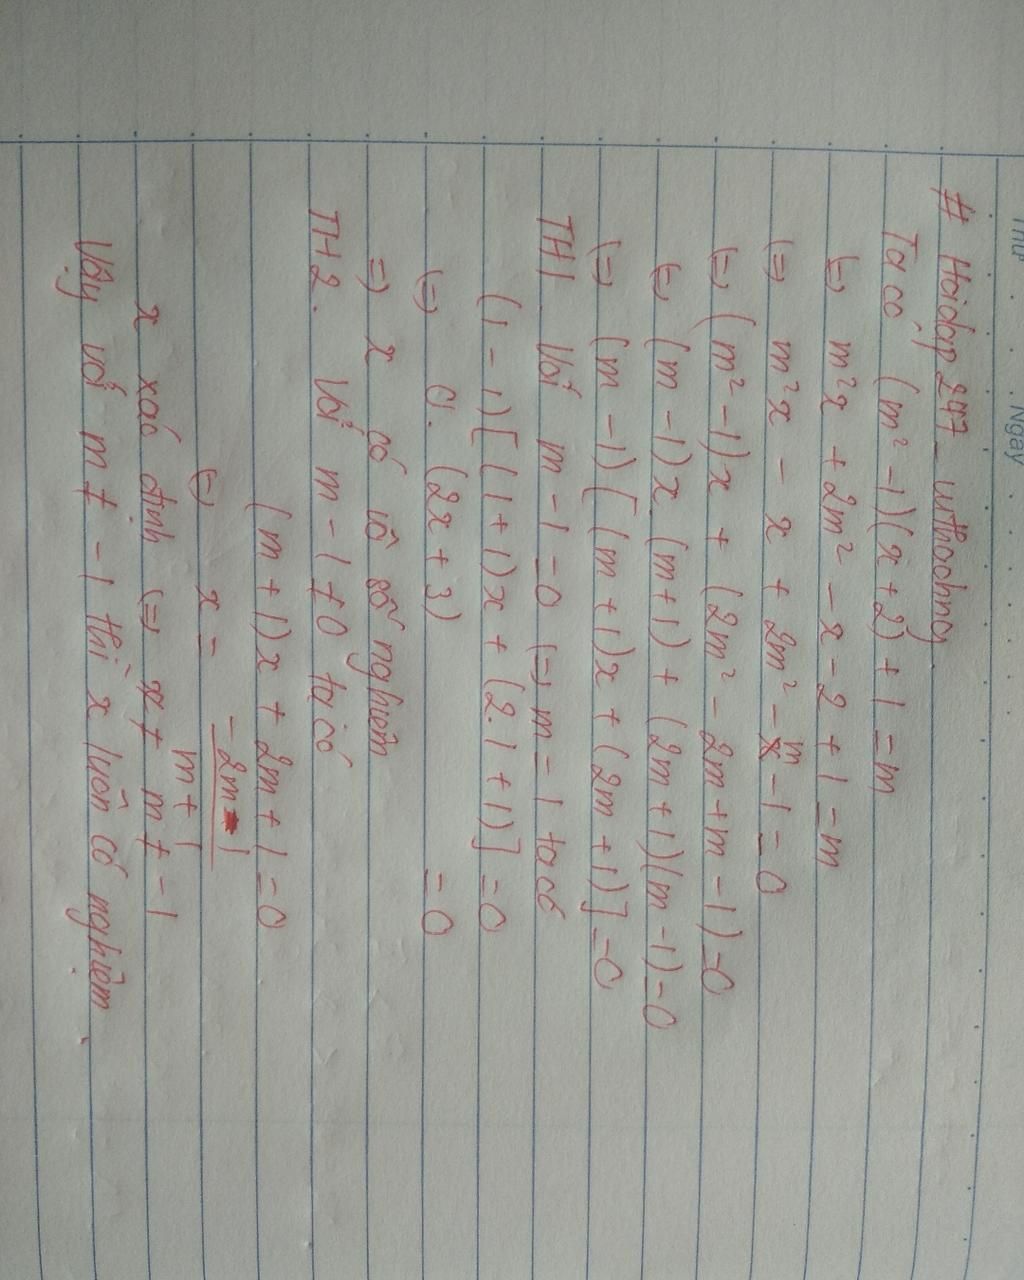 Thứ . . Ngày
# Hoidap247 - uthachnaj
Ta có (m² - 1)(x + 2) + 1 = m
(=) m²x + 2m² - x - 2 + 1 = m
(=) m²x - x + 2m² - m - 1 = 0
(=) (m² - 1)x + (2m² - 2m + m - 1) = 0
(=) (m - 1)x. (m + 1) + (2m + 1)(m - 1) = 0
(=) (m - 1)[(m + 1)x + (2m + 1)] = 0
TH1. Với m - 1 = 0 (=) m = 1 ta có
(1 - 1)[(1 + 1)x + (2.1 + 1)] = 0
(=) 0. (2x + 3) = 0
=) x có vô số nghiệm
TH2. Với m - 1 ≠ 0 ta có
(m + 1)x + 2m + 1 = 0
(=) x = \frac{-2m - 1}{m + 1}
x xác định (=) x ≠ m ≠ - 1
Vậy với m ≠ - 1 thì x luôn có nghiệm.